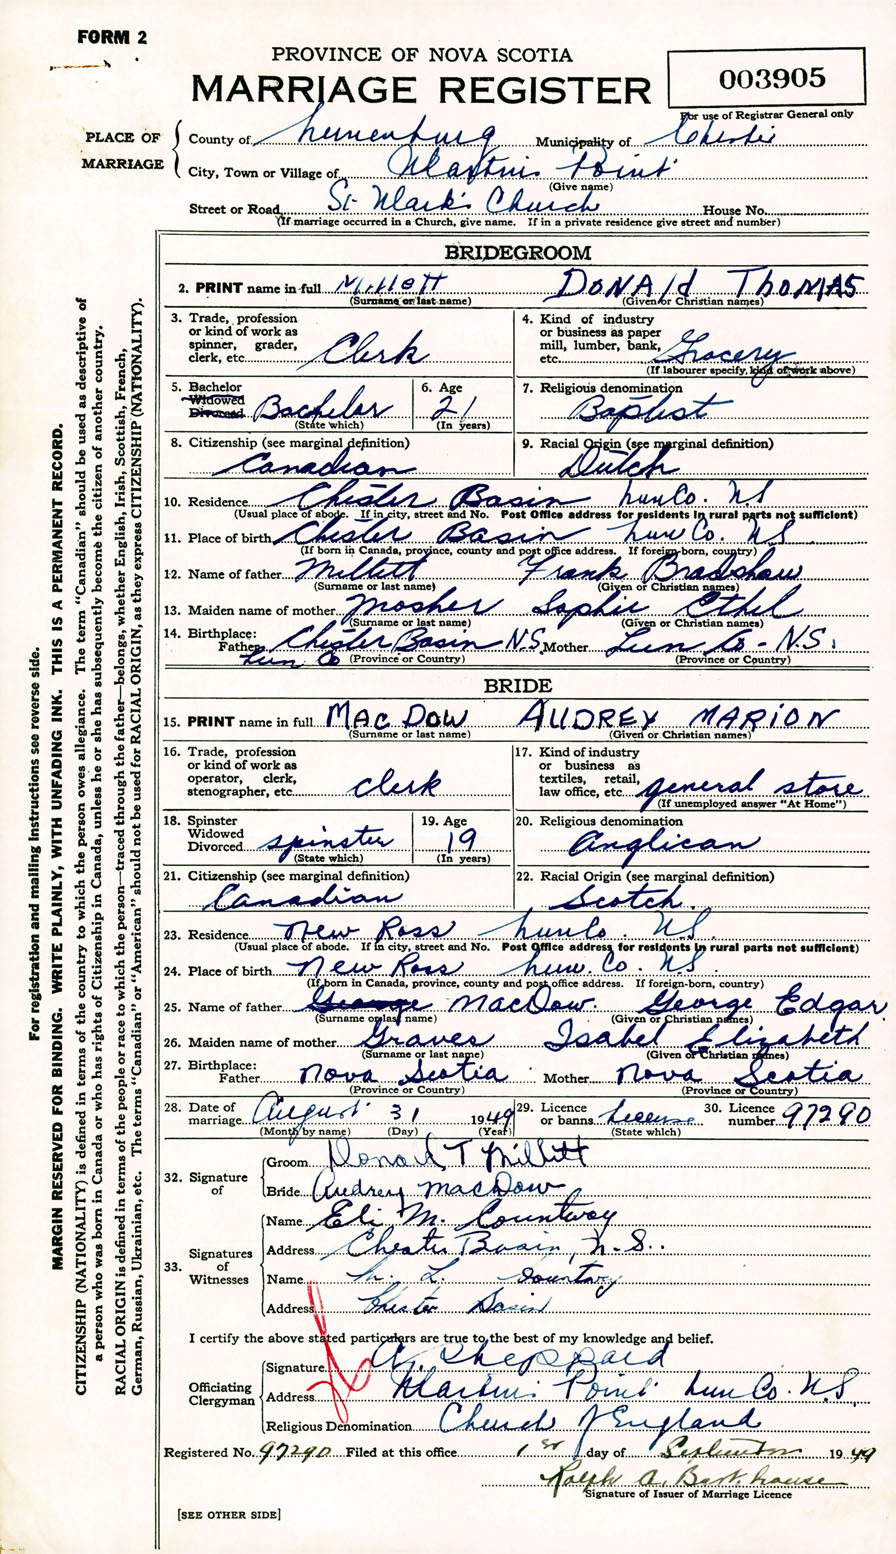 FORM 2
PROVINCE OF NOVA SCOTIA
MARRIAGE REGISTER
003905
For use of Registrar General only
PLACE OF MARRIAGE
County of Lunenburg Municipality of Chester
City, Town or Village of Martins Point
(Give name)
Street or Road St Mark's Church House No.
(If marriage occurred in a Church, give name. If in a private residence give street and number)
BRIDEGROOM
2. PRINT name in full Millett DONALd ThOMAS
(Surname or last name) (Given or Christian names)
3. Trade, profession or kind of work as spinner, grader, clerk, etc. Clerk
4. Kind of industry or business as paper mill, lumber, bank, etc. Grocery
(If labourer specify, kind of work above)
5. Bachelor Widowed Divorced Bachelor
(State which)
6. Age 21
(In years)
7. Religious denomination Baptist
8. Citizenship (see marginal definition) Canadian
9. Racial Origin (see marginal definition) Dutch
10. Residence Chester Basin Lun Co. NS
(Usual place of abode. If in city, street and No. Post Office address for residents in rural parts not sufficient)
11. Place of birth Chester Basin Lun Co. NS
(If born in Canada, province, county and post office address. If foreign-born, country)
12. Name of father Millett Frank Bradshaw
(Surname or last name) (Given or Christian names)
13. Maiden name of mother Mosher Sophie Ethel
(Surname or last name) (Given or Christian names)
14. Birthplace: Father Chester Basin N.S. Lun Co Mother Lun Co - N.S.
(Province or Country) (Province or Country)
BRIDE
15. PRINT name in full MAC DOW AUDREY MARION
(Surname or last name) (Given or Christian names)
16. Trade, profession or kind of work as operator, clerk, stenographer, etc. clerk
17. Kind of industry or business as textiles, retail, law office, etc. general store
(If unemployed answer "At Home")
18. Spinster Widowed Divorced spinster
(State which)
19. Age 19
(In years)
20. Religious denomination Anglican
21. Citizenship (see marginal definition) Canadian
22. Racial Origin (see marginal definition) Scotch.
23. Residence New Ross Lun Co. NS.
(Usual place of abode. If in city, street and No. Post Office address for residents in rural parts not sufficient)
24. Place of birth New Ross Lun. Co. NS.
(If born in Canada, province, county and post office address. If foreign-born, country)
25. Name of father George MacDow. George Edgar
(Surname or last name) (Given or Christian names)
26. Maiden name of mother Graves Isabel Elizabeth
(Surname or last name) (Given or Christian names)
27. Birthplace: Father Nova Scotia Mother Nova Scotia
(Province or Country) (Province or Country)
28. Date of marriage August 31 1949
(Month by name) (Day) (Year)
29. Licence or banns License
(State which)
30. Licence number 97290
32. Signature of
Groom Donald T Millett
Bride Audrey MacDow
33. Signatures of Witnesses
Name Eli M. Countway
Address Chester Basin, N.S.
Name L. Countway
Address Chester Basin
I certify the above stated particulars are true to the best of my knowledge and belief.
Officiating Clergyman
Signature Sheppard
Address Martins Point Lun Co. NS
Religious Denomination Church of England
Registered No. 97290 Filed at this office 1st day of September 1949
Ralph A. Barkhouse
Signature of Issuer of Marriage Licence
[SEE OTHER SIDE]
For registration and mailing instructions see reverse side.
MARGIN RESERVED FOR BINDING. WRITE PLAINLY, WITH UNFADING INK. THIS IS A PERMANENT RECORD.
CITIZENSHIP (NATIONALITY) is defined in terms of the country to which the person owes allegiance. The term "Canadian" should be used as descriptive of
a person who was born in Canada or who has rights of Citizenship in Canada, unless he or she has subsequently become the citizen of another country.
RACIAL ORIGIN is defined in terms of the people or race to which the person—traced through the father—belongs, whether English, Irish, Scottish, French,
German, Russian, Ukrainian, etc. The terms "Canadian" or "American" should not be used for RACIAL ORIGIN, as they express CITIZENSHIP (NATIONALITY).